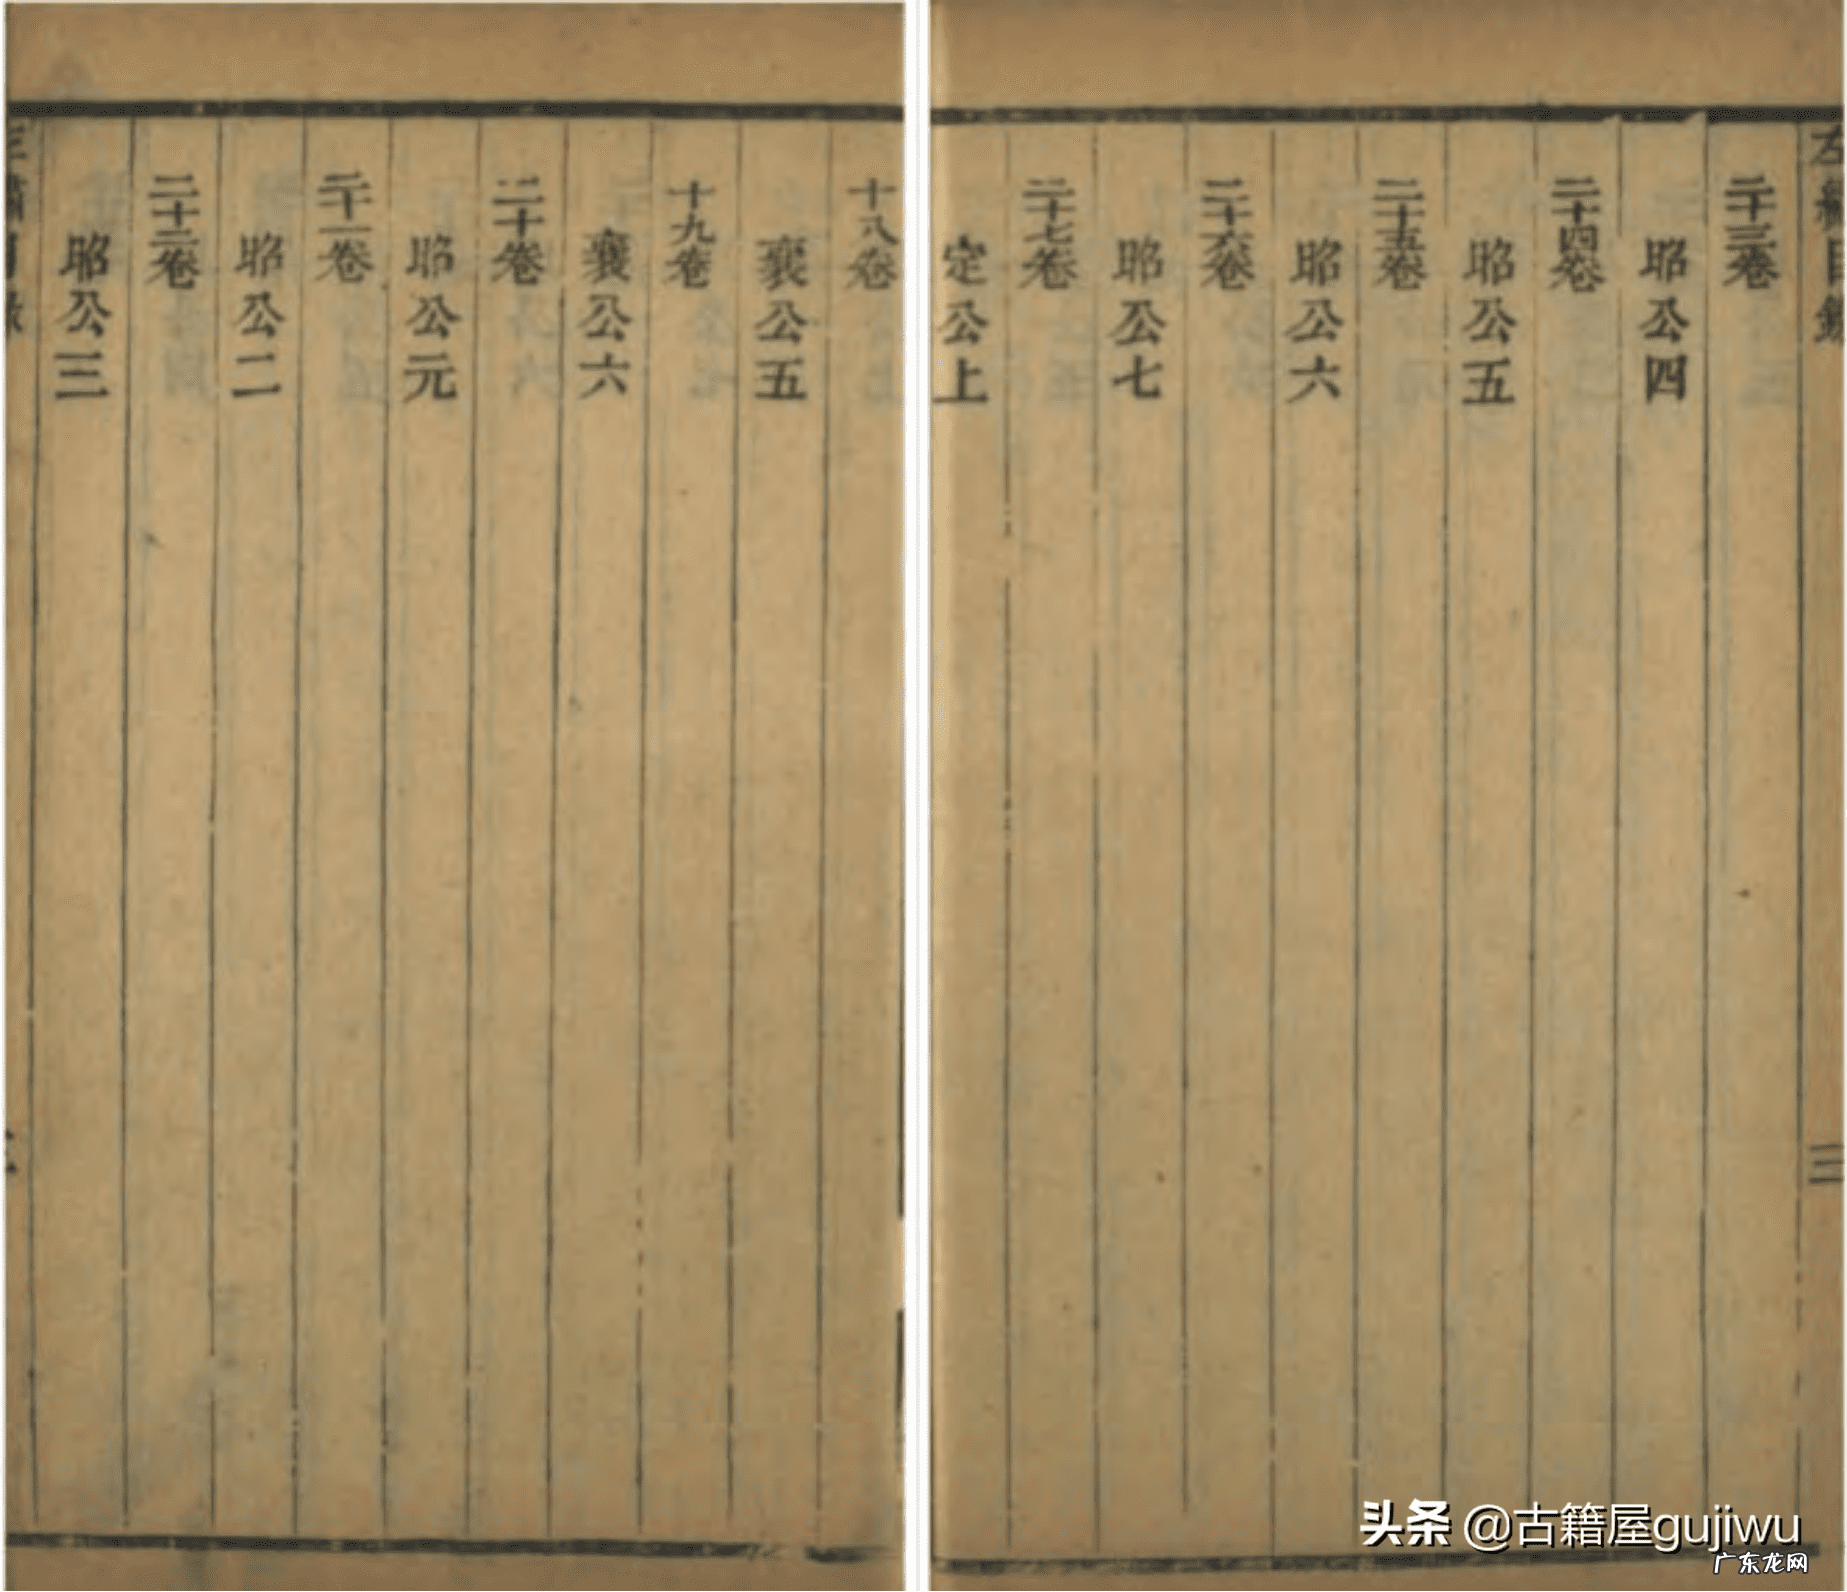 十八卷
襄公五
十九卷
襄公六
二十卷
昭公元
二十一卷
昭公二
二十二卷
昭公三
左繡目錄
三
二十三卷
昭公四
二十四卷
昭公五
二十五卷
昭公六
二十六卷
昭公七
二十七卷
定公上
头条 @古籍屋gujiwu
广东龙网